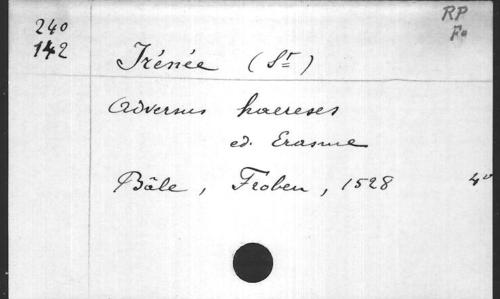 240
142
RP
Fo
Irénée (St)
Adversus haereses
ed. Erasme
Bâle, Froben, 1528 4°